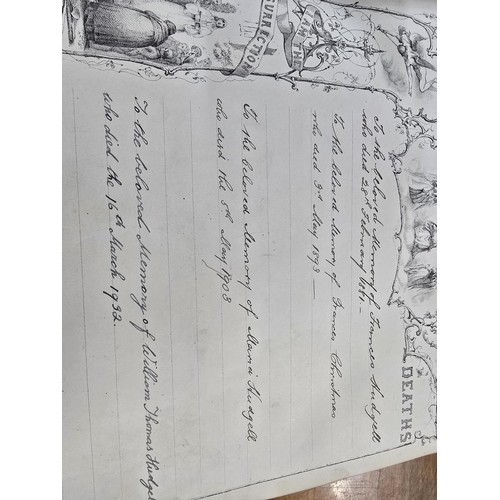 DEATHS
I AM THE
RESURRECTION
To the beloved Memory of Frances Hudgell
who died 28th February 1881.—
To the beloved Memory of Frances Christmas
who died 3rd May 1893 —
To the beloved Memory of Maria Hudgell
who died the 5th May 1903
To the beloved Memory of William Thomas Hudgell
who died the 16th March 1932.